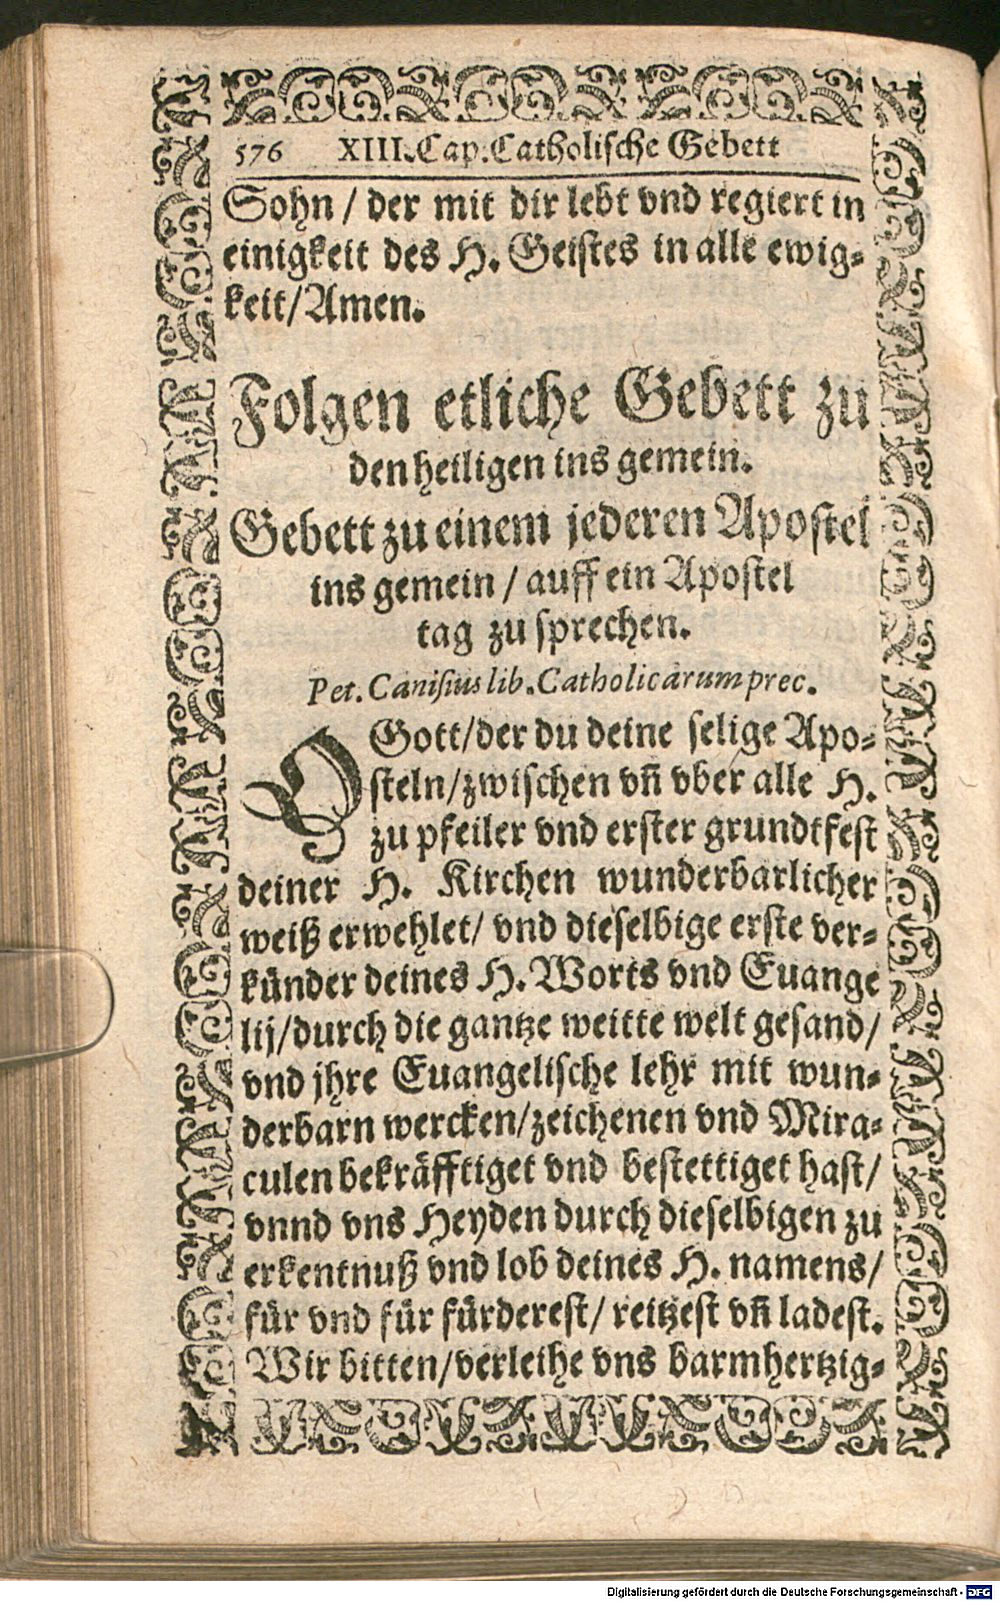 576 XIII. Cap. Catholische Gebett
Sohn / der mit dir lebt vnd regiert in
einigkeit des H. Geistes in alle ewig⸗
keit/Amen.
Folgen etliche Gebett zu
den heiligen ins gemein.
Gebett zu einem jederen Apostel
ins gemein / auff ein Apostel
tag zu sprechen.
Pet. Canisius lib. Catholicarum prec.
O Gott/der du deine selige Apo⸗
steln/zwischen vñ vber alle H.
zu pfeiler vnd erster grundtfest
deiner H. Kirchen wunderbarlicher
weiß erwehlet/ vnd dieselbige erste ver⸗
künder deines H. Worts vnd Euange
lij/durch die gantze weitte welt gesand/
vnd jhre Euangelische lehr mit wun⸗
derbarn wercken/zeichenen vnd Mira⸗
culen bekräfftiget vnd bestettiget hast/
vnnd vns Heyden durch dieselbigen zu
erkentnuß vnd lob deines H. namens/
für vnd für fürderest/ reitzest vñ ladest.
Wir bitten/verleihe vns barmhertzig⸗
Digitalisierung gefördert durch die Deutsche Forschungsgemeinschaft - DFG